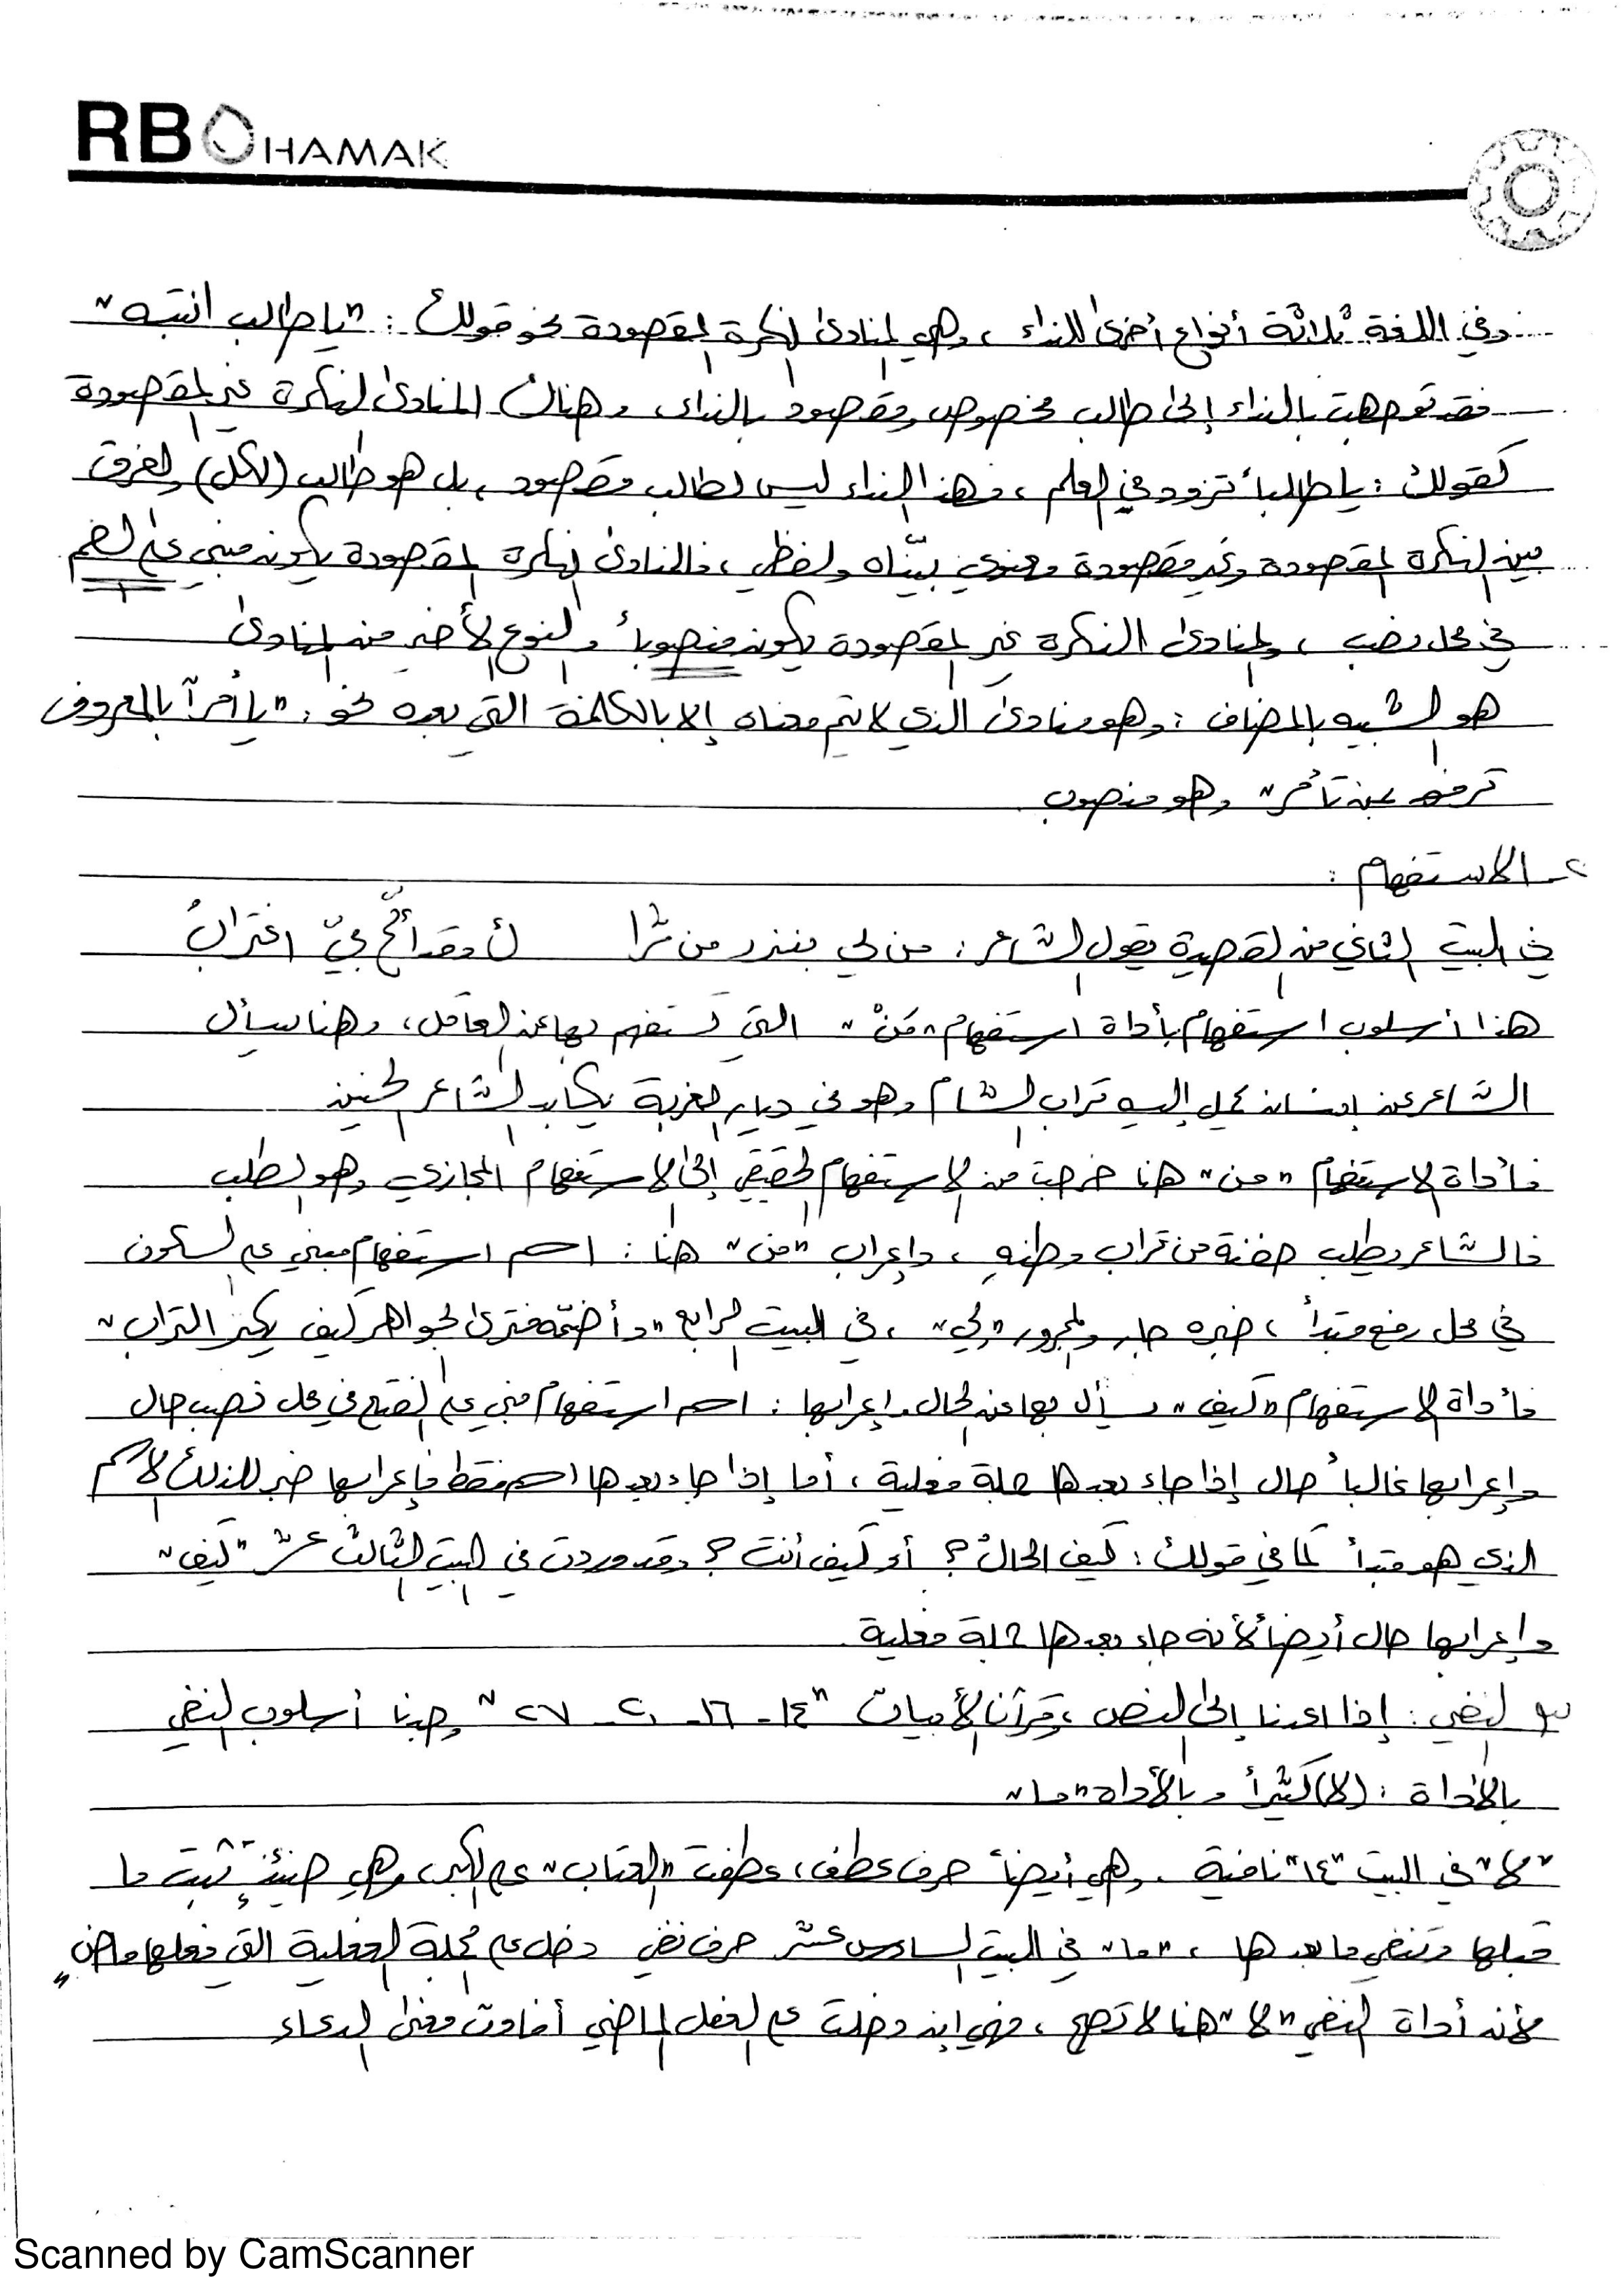 RB HAMAK
وفي اللغة ثلاثة أنواع أخرى للنداء ، وهي المنادى النكرة المقصودة نحو قولك : "يا طالب انتبه"
فقد توجهت بالنداء إلى طالب مخصوص ومقصود بالنداء وهناك المنادى النكرة غير المقصودة
كقولك : يا طالباً تزود في العلم ، فهذا النداء ليس لطالب مقصود ، بل هو طالب (لكل) والفرق
بين النكرة المقصودة وغير مقصودة معنوي بيّناه ولفظي ، فالمنادى النكرة المقصودة يكون مبني على الضم
في محل نصب ، والمنادى النكرة غير المقصودة يكون منصوباً والنوع الأخير من المنادى
هو الشبيه بالمضاف : وهو منادى الذي لا يتم معناه إلا بالكلمة التي بعده نحو : "يا أمرآ بالمعروف
ترفق بمن تأمر" وهو منصوب
٢- الاستفهام :
في البيت الثاني من القصيدة يقول الشاعر : من لي بنزر من ثرا ك وقد ألحّ بيّ اغترابُ
هذا أسلوب استفهام بأداة استفهام "مَنْ" التي تستفهم بها عن العاقل ، وهنا سيأل
الشاعر عن إنسان يحمل إليه تراب الشام وهو في ديار الغربة يكابد الشاعر الحنين
فأداة الاستفهام "من" هنا خرجت من الاستفهام الحقيقي إلى الاستفهام المجازي وهو الطلب
فالشاعر يطلب حفنة من تراب وطنهِ ، وإعراب "من" هنا : اسم استفهام مبني على السكون
في محل رفع مبتدأ ، خبره جار والمجرور "لي" ، في البيت الرابع "وأضمّه فترى الجواهر كيف يكنز التراب"
فأداة الاستفهام "كيف" يسأل بها عن الحال وإعرابها : اسم استفهام مبني على الفتح في محل نصب حال
وإعرابها غالباً حال إذا جاء بعدها جملة فعلية ، أما إذا جاء بعدها اسم فقط فإعرابها خبر للذلك الاسم
الذي هو مبتدأ كما في قولك : كيف الحالُ ؟ أو كيف أنت ؟ وقد وردت في البيت الثالث عشر "كيف"
وإعرابها حال أيضاً لأنه جاء بعدها جملة فعلية
٣- النفي : إذا اعدنا إلى النص ، وقرأنا الأبيات "١٤ - ١٦ - ٢٠ - ٢٧" وجدنا أسلوب النفي
بالأداة : (لا) كثيراً وبالأداة "ما"
"لا" في البيت "١٤" نافية . وهي أيضاً حرف عطف ، عطفت "العتاب" على الكبر وهي حينئذٍ تثبت ما
قبلها وتنفي ما بعدها ، "ما" في البيت السادس عشر حرف نفي دخل على جملة الفعلية التي فعلها ماضٍ"
لأن أداة النفي "لا" هنا لا تصح ، فهي إن دخلت على الفعل الماضي أفادت معنى الدعاء
Scanned by CamScanner